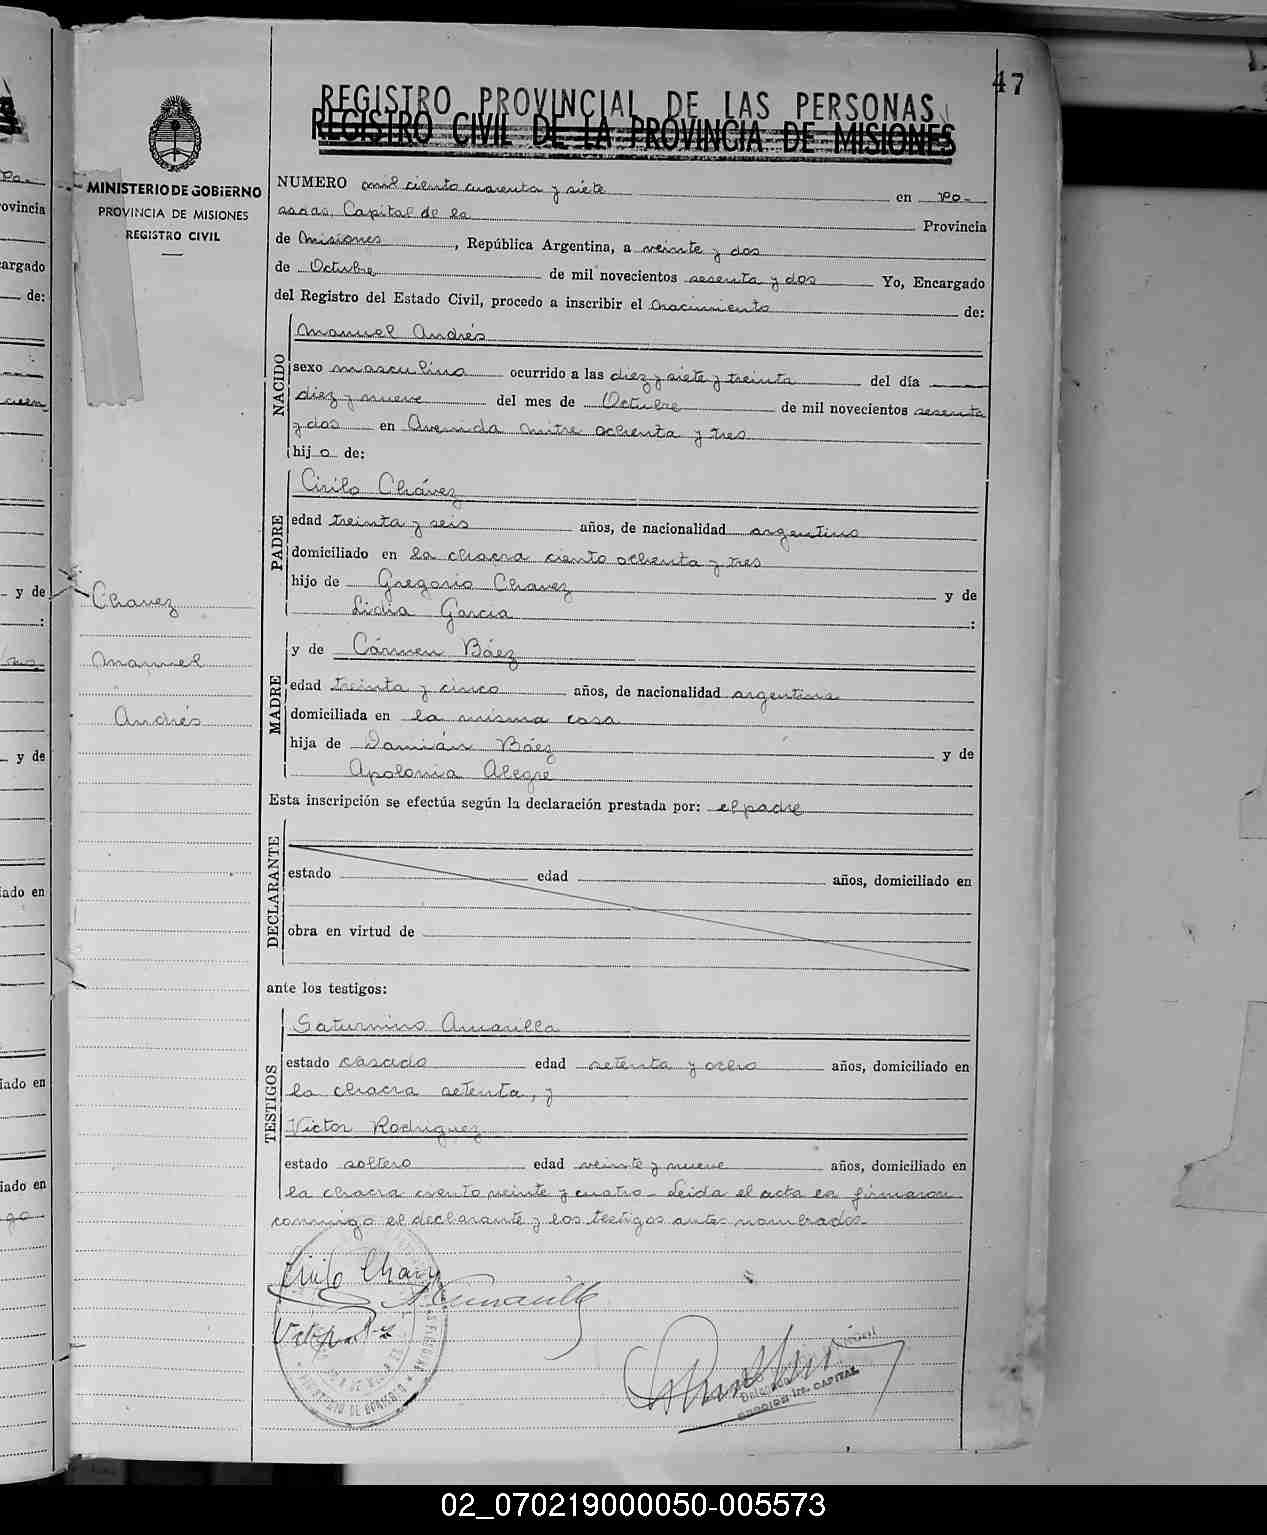 47
REGISTRO PROVINCIAL DE LAS PERSONAS
REGISTRO CIVIL DE LA PROVINCIA DE MISIONES
MINISTERIO DE GOBIERNO
PROVINCIA DE MISIONES
REGISTRO CIVIL
NUMERO mil ciento cuarenta y siete en Po-
sadas, Capital de la Provincia
de Misiones, República Argentina, a veinte y dos
de Octubre de mil novecientos sesenta y dos Yo, Encargado
del Registro del Estado Civil, procedo a inscribir el nacimiento de:
NACIDO
Manuel Andrés
sexo masculino ocurrido a las diez y siete y treinta del día
diez y nueve del mes de Octubre de mil novecientos sesenta
y dos en Avenida Mitre ochenta y tres
hijo de:
PADRE
Cirilo Chávez
edad treinta y seis años, de nacionalidad argentino
domiciliado en la chacra ciento ochenta y tres
hijo de Gregorio Chavez y de
Lidia Garcia :
MADRE
y de Cármen Báez
edad treinta y cinco años, de nacionalidad argentina
domiciliada en la misma casa
hija de Damián Báez y de
Apolonia Alegre
Chavez
Manuel
Andrés
Esta inscripción se efectúa según la declaración prestada por: el padre
DECLARANTE
estado edad años, domiciliado en
obra en virtud de
ante los testigos:
TESTIGOS
Saturnino Amarilla
estado casado edad setenta y ocho años, domiciliado en
la chacra setenta, y
Victor Rodriguez
estado soltero edad veinte y nueve años, domiciliado en
la chacra ciento veinte y cuatro - Leida el acta la firmaron
conmigo el declarante y los testigos antes nombrados-
Cirilo Chavez
CAPITAL
02_070219000050-005573